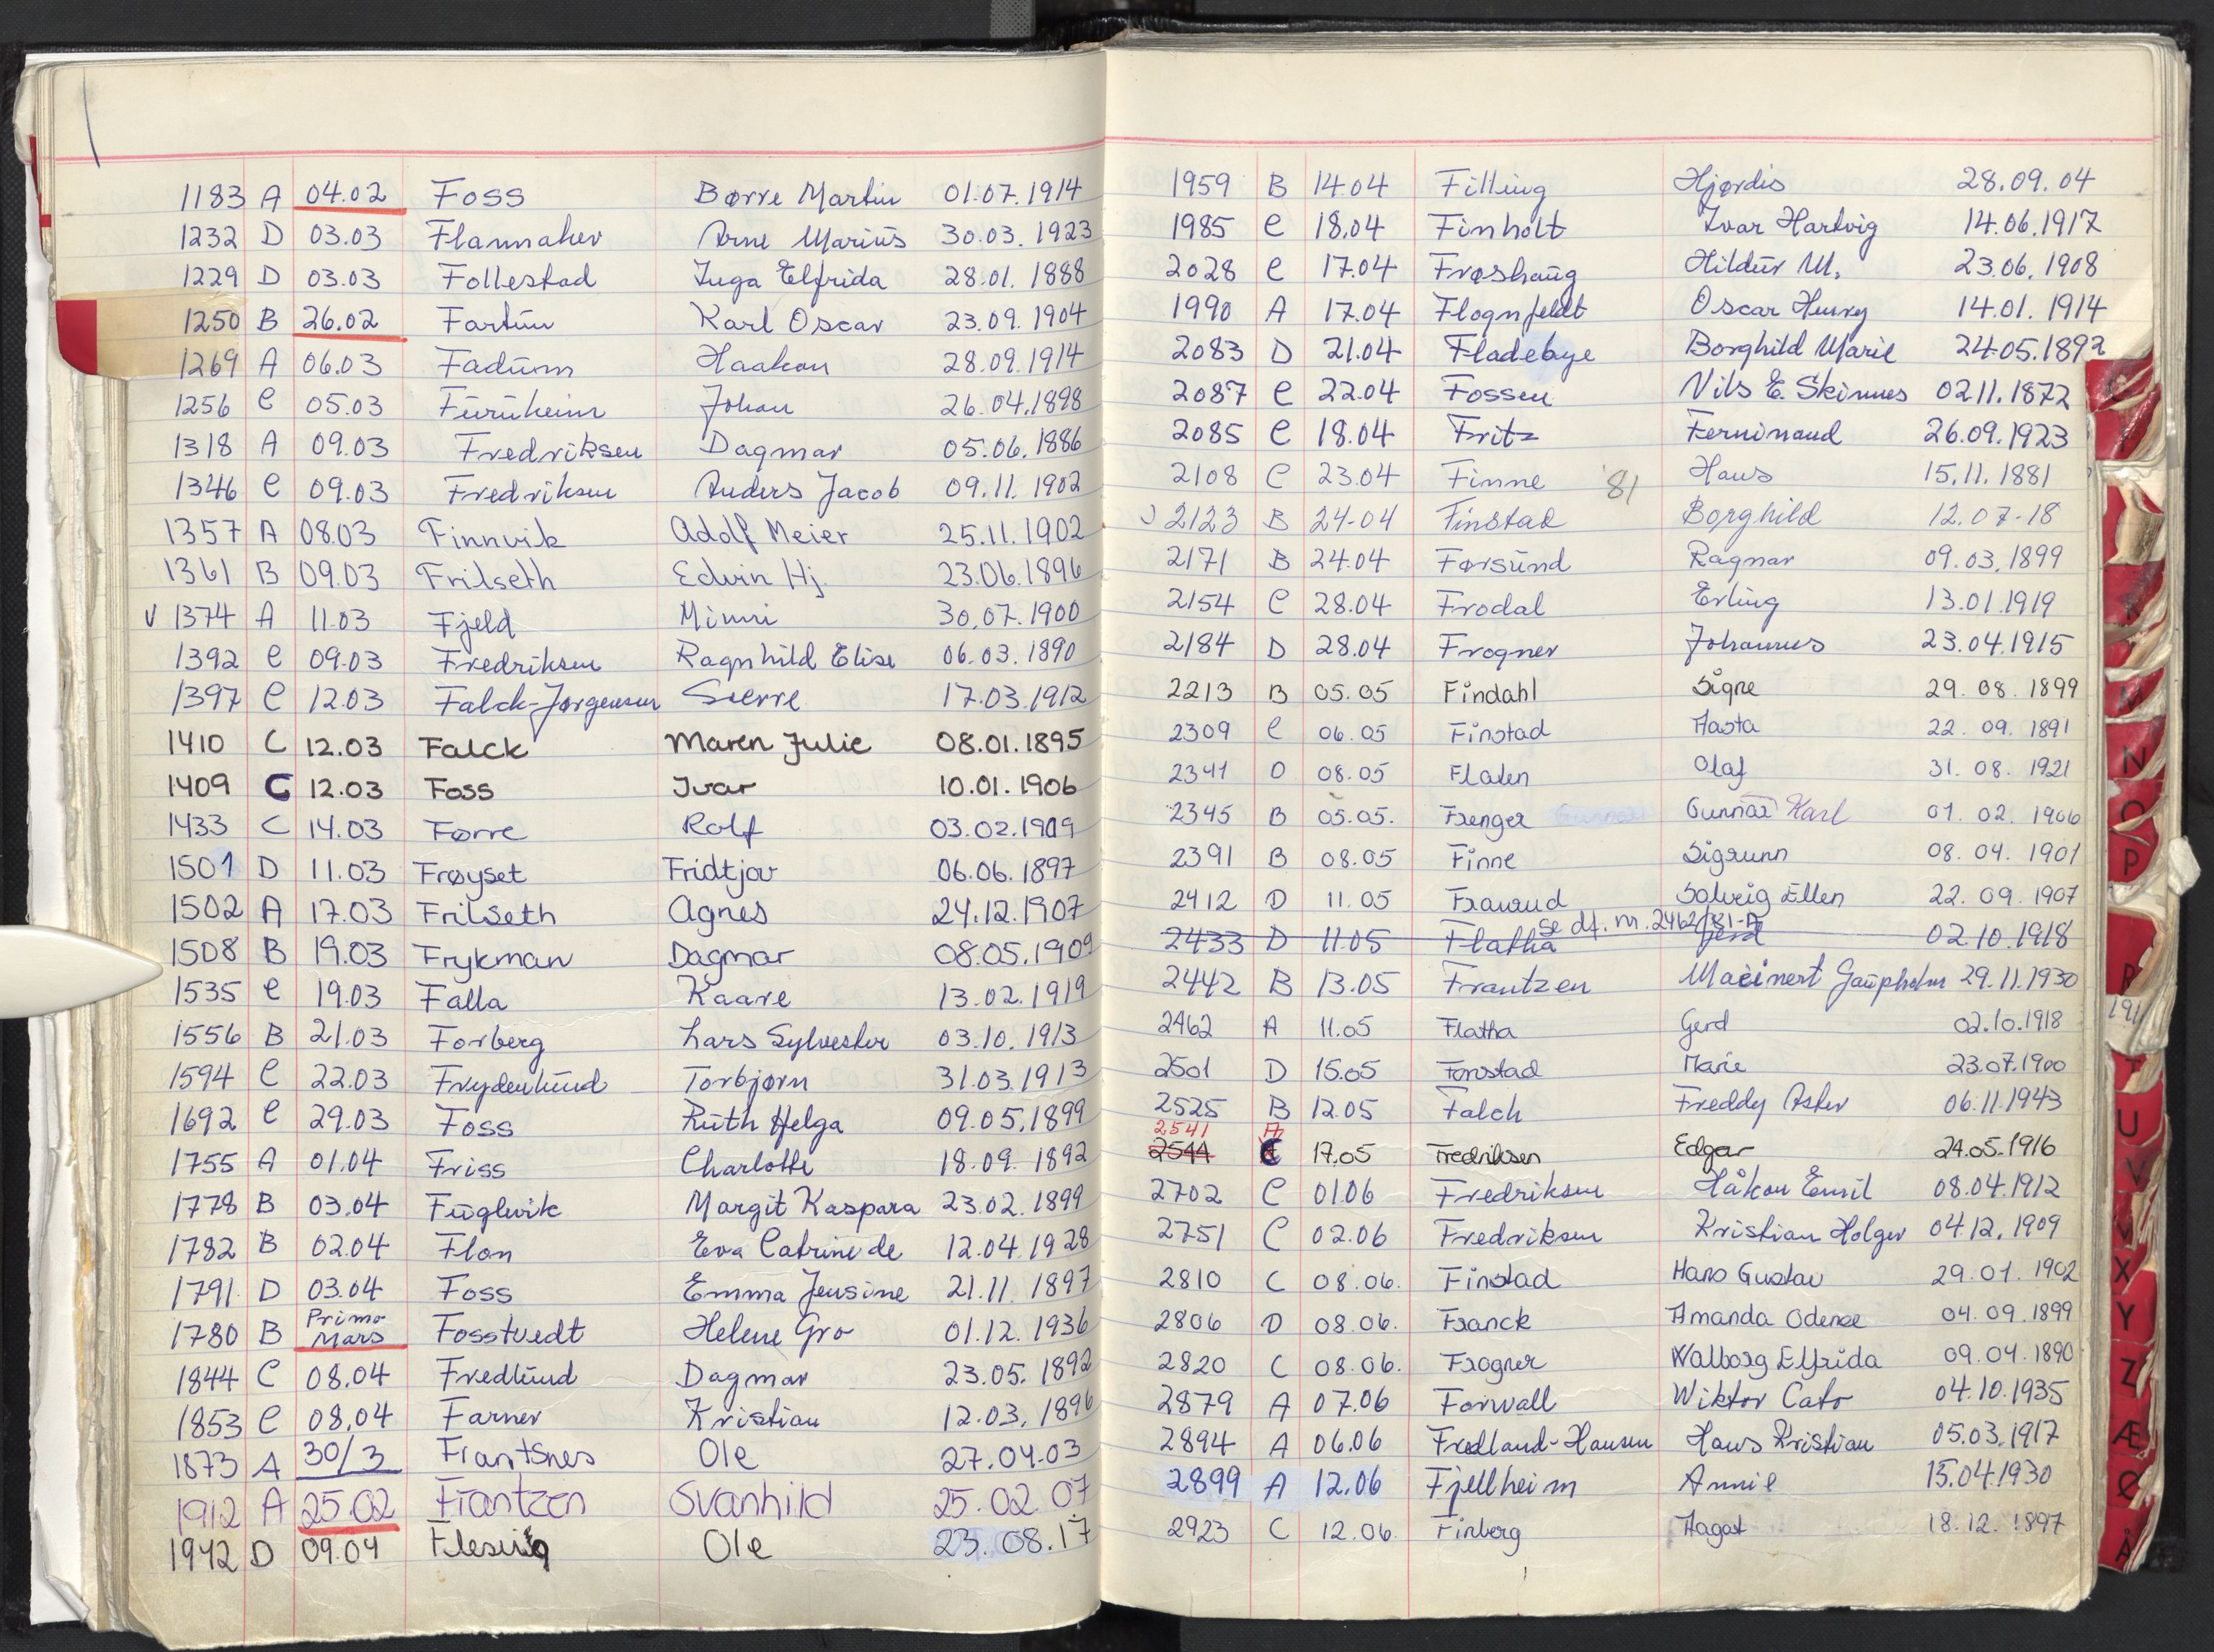 1183 A 04.02 Foss Børre Martin 01.07.1914
1232 D 03.03 Flannaker Arne Marius 30.03.1923
1229 D 03.03 Follestad Inga Elfrida 28.01.1888
1250 B 26.02 Fartun Karl Oscar 23.09.1904
1269 A 06.03 Fadum Haakon 28.09.1914
1256 C 05.03 Furuheim Johan 26.04.1898
1318 A 09.03 Fredriksen Dagmar 05.06.1886
1346 C 09.03 Fredriksen Anders Jacob 09.11.1902
1357 A 08.03 Finnvik Adolf Meier 25.11.1902
1361 B 09.03 Frilseth Edvin Hj. 23.06.1896
V 1374 A 11.03 Fjeld Minni 30.07.1900
1392 C 09.03 Fredriksen Ragnhild Elise 06.03.1890
1397 C 12.03 Falck-Jørgensen Sverre 17.03.1912
1410 C 12.03 Falck Maren Julie 08.01.1895
1409 C 12.03 Foss Ivar 10.01.1906
1433 C 14.03 Førre Rolf 03.02.1909
1501 D 11.03 Frøyset Fridtjov 06.06.1897
1502 A 17.03 Frilseth Agnes 24.12.1907
1508 B 19.03 Frykman Dagmar 08.05.1909
1535 C 19.03 Falla Kaare 13.02.1919
1556 B 21.03 Forberg Lars Sylvester 03.10.1913
1594 C 22.03 Frydenlund Torbjørn 31.03.1913
1692 C 29.03 Foss Ruth Helga 09.05.1899
1755 A 01.04 Friss Charlotte 18.09.1892
1778 B 03.04 Fuglevik Margit Kaspara 23.02.1899
1782 B 02.04 Flon Eva Catrine de 12.04.1928
1791 D 03.04 Foss Emma Jensine 21.11.1897
1780 B Primo Mars Fosstvedt Helene Gro 01.12.1936
1844 C 08.04 Fredlund Dagmar 23.05.1892
1853 C 08.04 Farner Kristian 12.03.1896
1873 A 30/3 Frantsnes Ole 27.04.03
1912 A 25.02 Frantzen Svanhild 25.02.07
1942 D 09.04 Flesvig Ole 23.08.17
1959 B 14.04 Filling Hjørdis 28.09.04
1985 C 18.04 Finholt Ivar Hartvig 14.06.1917
2028 C 17.04 Frøshaug Hildur M. 23.06.1908
1990 A 17.04 Flognfeldt Oscar Henry 14.01.1914
2083 D 21.04 Fladebye Borghild Marie 24.05.1892
2087 C 22.04 Fossen Nils E. Skinnes 02.11.1872
2085 C 18.04 Fritz Ferninand 26.09.1923
2108 C 23.04 Finne '81 Hans 15.11.1881
2123 B 24-04 Finstad Borghild 12.07-18
2171 B 24.04 Førsund Ragnar 09.03.1899
2154 C 28.04 Frodal Erling 13.01.1919
2184 D 28.04 Frogner Johannes 23.04.1915
2213 B 05.05 Findahl Signe 29.08.1899
2309 C 06.05 Finstad Aasta 22.09.1891
2341 D 08.05 Flaten Olaf 31.08.1921
2345 B 05.05. Frenger Gunnar Karl 01.02.1906
2391 B 08.05 Finne Sigrunn 08.04.1901
2412 D 11.05 Frarud Solveig Ellen 22.09.1907
se df. nr. 2462/81-A
2433 D 11.05 Flatha Gerd 02.10.1918
2442 B 13.05 Frantzen Meinert Gaupholm 29.11.1930
2462 A 11.05 Flatha Gerd 02.10.1918
2501 D 15.05 Fonstad Marie 23.07.1900
2525 B 12.05 Falch Freddy Aster 06.11.1943
2541 A
2544 C 17.05 Fredriksen Edgar 24.05.1916
2702 C 01.06 Fredriksen Håkon Emil 08.04.1912
2751 C 02.06 Fredriksen Kristian Holger 04.12.1909
2810 C 08.06. Finstad Hans Gustav 29.01.1902
2806 D 08.06. Franck Amanda Odence 04.09.1899
2820 C 08.06. Frogner Walborg Elfrida 09.04.1890
2879 A 07.06 Forwall Wiktor Cato 04.10.1935
2894 A 06.06 Fredland-Hansen Hans Kristian 05.03.1917
2899 A 12.06 Fjellheim Annie 15.04.1930
2923 C 12.06. Finberg Aagot 18.12.1897
M
N
O
P
R
U
V
X
Y
Z
Æ
Ø
Å